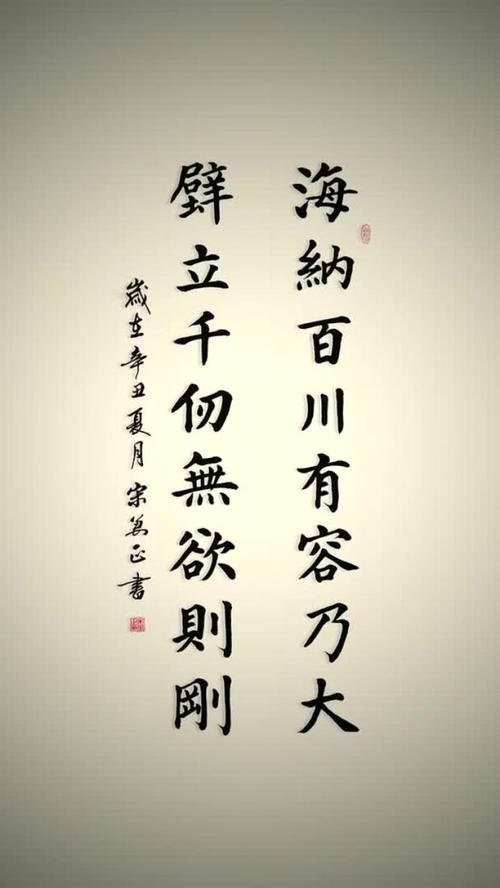 海納百川有容乃大
壁立千仞無欲則剛
歲在辛丑夏月 宋正書